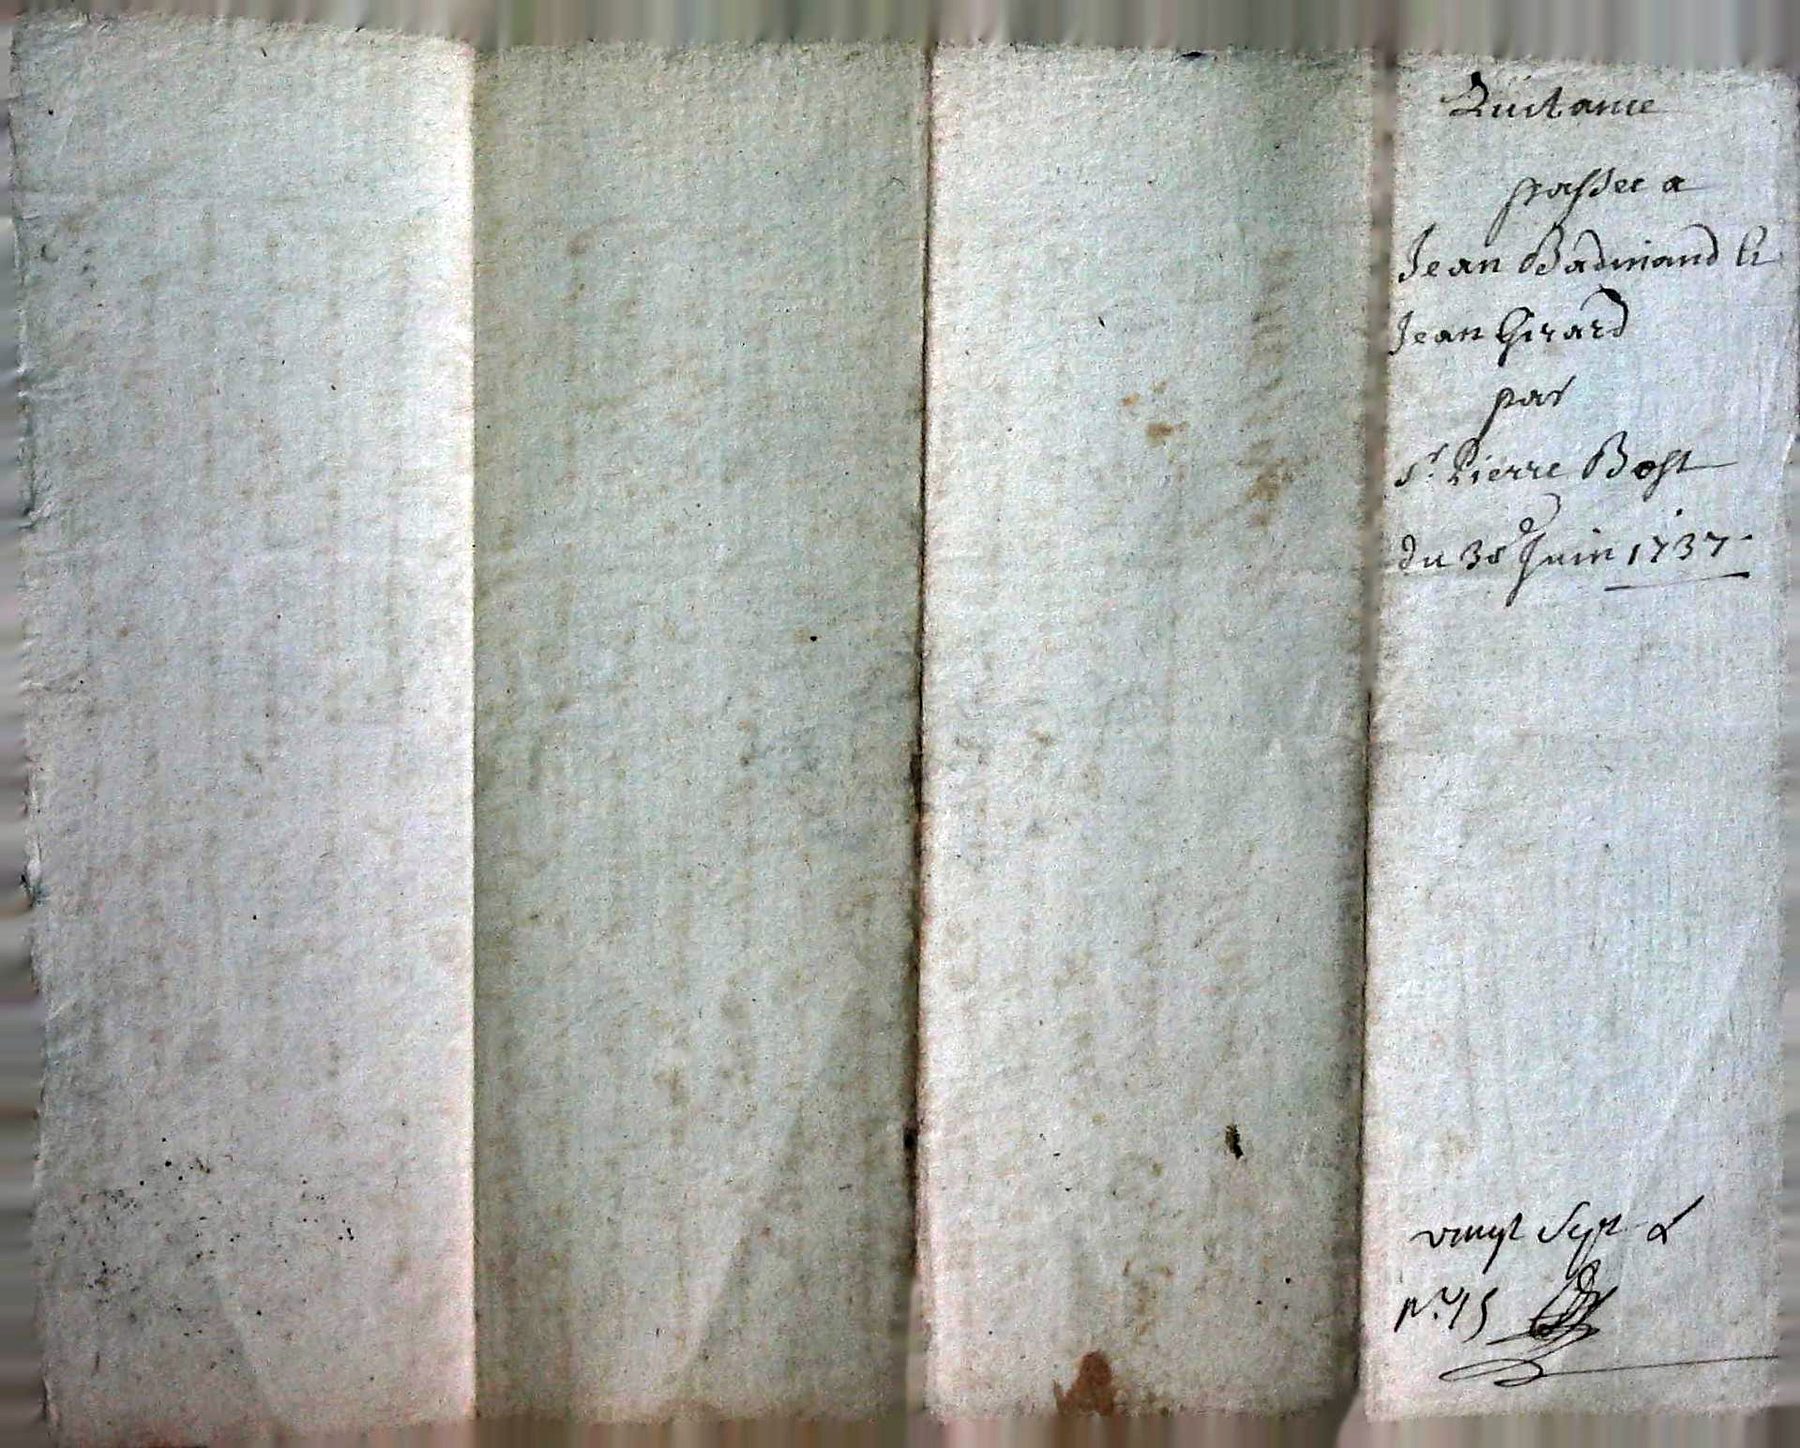 Quitance
passée a
Jean Badinand &
Jean Girard
par
Sr. Pierre Bost
du 30e Juin 1737.
vingt Sept